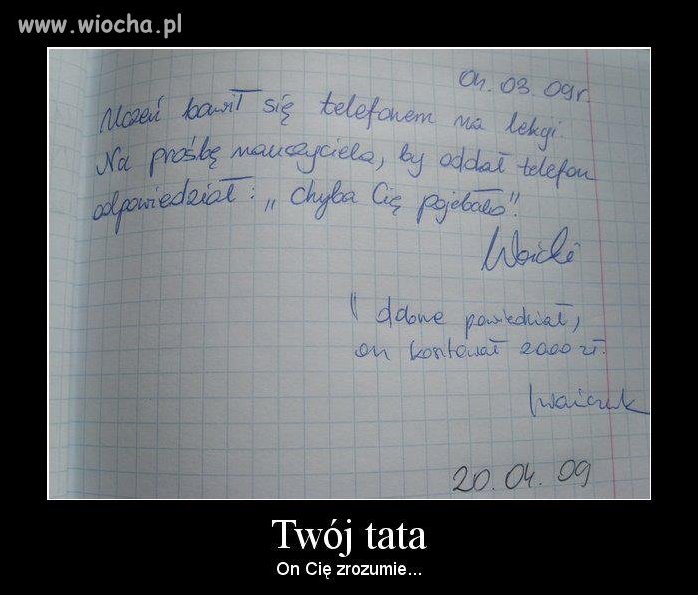 www.wiocha.pl
04.03.09r.
Uczeń bawił się telefonem na lekcji.
Na prośbę nauczyciela, by oddał telefon
odpowiedział: „Chyba Cię pojebało".
powiedział,
on kosztował 2000 zł.
20.04.09
Twój tata
On Cię zrozumie...